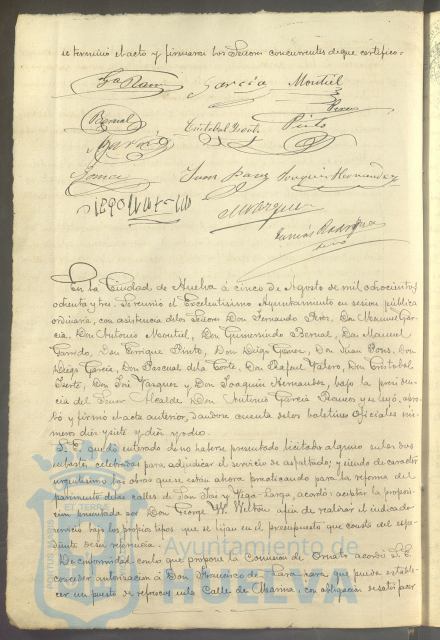 se terminó el acto y firmaron los Señores concurrentes de que certifico.
Ga Ramos García Montiel
Pérez
Bernal Cristobal Pinto
García
Gomez Juan Pons Joaquin Hernandez
M Vazquez
En la Ciudad de Huelva á cinco de Agosto de mil ochocientos
ochenta y tres. Se reunió el Excelentísimo Ayuntamiento en sesion pública
ordinaria, con asistencia de los Señores Don Fernando Don Manuel Gar-
cía, Don Antonio Montiel, Don Gumersindo Bernal, Don Manuel
Garrido, Don Enrique Pinto, Don Diego Gomez, Don Juan Pons, Don
Diego García, Don Pascual de la Corte, Don Rafael Don Cristobal
Don José Vazquez y Don Joaquin Hernandez, bajo la presiden-
cia del Señor Alcalde Don Antonio García Ramos y se leyó, apro-
bó y firmó el acta anterior, dandose cuenta de los boletines Oficiales nú-
meros diez y siete y diez y ocho.
S. E. quedó enterado de no haberse presentado licitador alguno en las dos
subastas celebradas para adjudicar el servicio de asfaltado; y siendo de caracter
urgentísimo las obras que se están ahora practicando para la reforma del
pavimento de las calles de San José y Vega-Larga, acordó: aceptar la proposi-
cion presentada por Don George W. Welton á fin de realizar el indicado
servicio bajo los propios tipos que se fijan en el presupuesto que consta del expe-
diente de su referencia.
De conformidad con lo que propone la Comision de Ornato acordó S. E.
conceder autorizacion á Don Francisco de Lara para que pueda estable-
cer un puesto de refrescos en la Calle de Marina, con obligacion de satisfacer
Ayuntamiento de
HUELVA
PORTUS MARIS ET TERRAE CUSTODIA